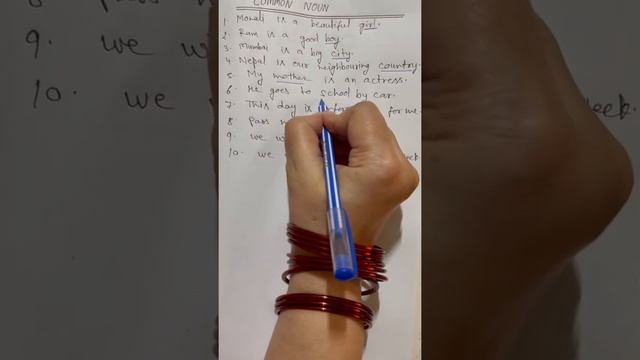 COMMON NOUN
1. Monali is a beautiful girl.
2. Ram is a good boy.
3. Mumbai is a big city.
4. Nepal is our neighbouring country.
5. My mother is an actress.
6. He goes to school by car.
7. This day is for me.
8. Pass
9. we
10. we